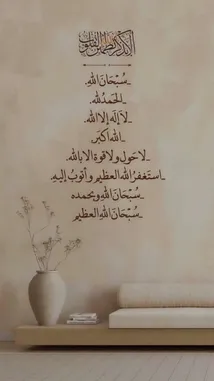 ألا بذكر الله تطمئن القلوب
ـ سُبْحَانَ اللهِ.
ـ الحَمدُ لله.
ـ لا إله إلا الله.
ـ الله أكبر.
ـ لا حول ولا قوة الا بالله.
ـ استغفرُ الله العظيم وأتوبُ إليهِ.
ـ سُبْحَانَ اللهِ وبحمده
ـ سُبْحَانَ اللهِ العظيم